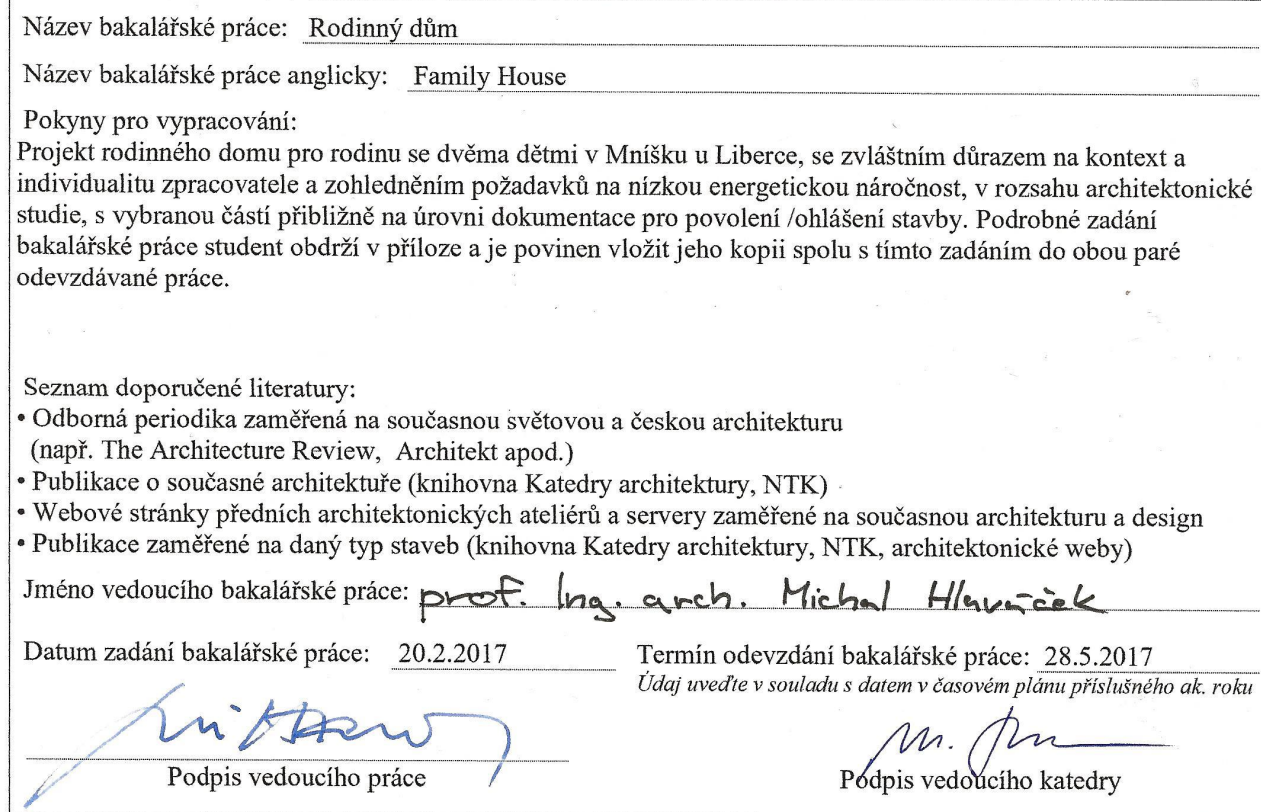 Název bakalářské práce: Rodinný dům
Název bakalářské práce anglicky: Family House
Pokyny pro vypracování:
Projekt rodinného domu pro rodinu se dvěma dětmi v Mníšku u Liberce, se zvláštním důrazem na kontext a
individualitu zpracovatele a zohledněním požadavků na nízkou energetickou náročnost, v rozsahu architektonické
studie, s vybranou částí přibližně na úrovni dokumentace pro povolení /ohlášení stavby. Podrobné zadání
bakalářské práce student obdrží v příloze a je povinen vložit jeho kopii spolu s tímto zadáním do obou paré
odevzdávané práce.
Seznam doporučené literatury:
• Odborná periodika zaměřená na současnou světovou a českou architekturu
(např. The Architecture Review, Architekt apod.)
• Publikace o současné architektuře (knihovna Katedry architektury, NTK)
• Webové stránky předních architektonických ateliérů a servery zaměřené na současnou architekturu a design
• Publikace zaměřené na daný typ staveb (knihovna Katedry architektury, NTK, architektonické weby)
Jméno vedoucího bakalářské práce: prof. Ing. arch. Michal Hlaváček
Datum zadání bakalářské práce: 20.2.2017 Termín odevzdání bakalářské práce: 28.5.2017
Údaj uveďte v souladu s datem v časovém plánu příslušného ak. roku
Podpis vedoucího práce Podpis vedoucího katedry